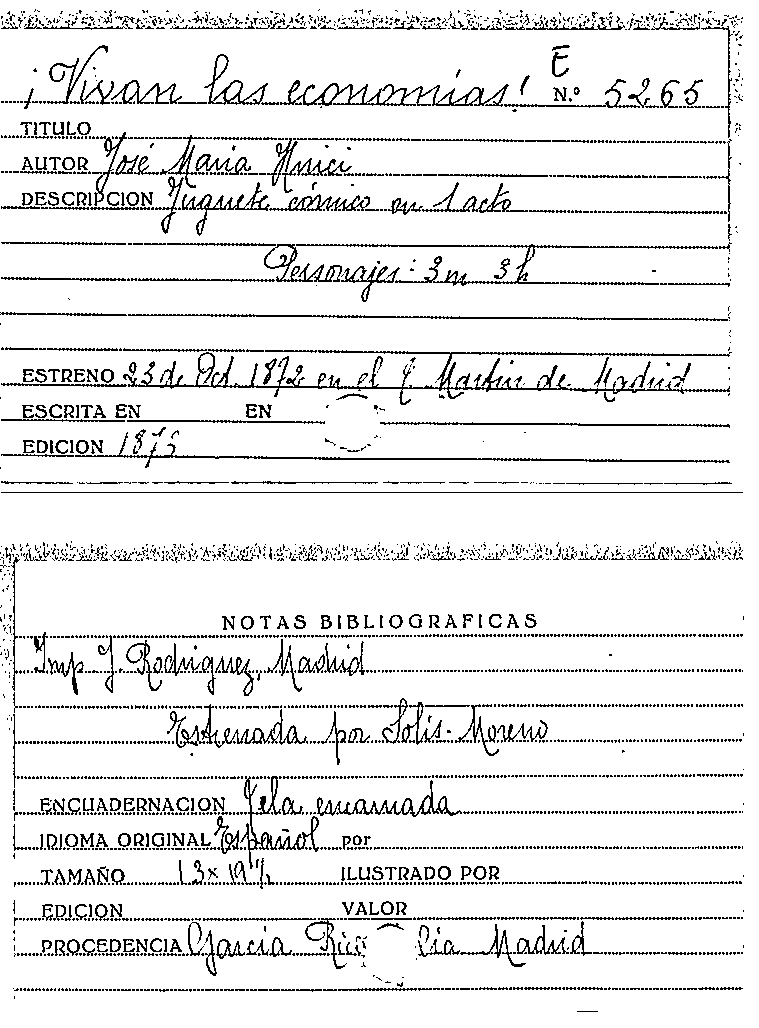 E
¡Vivan las economías! N.º 5265
TITULO
AUTOR José María
DESCRIPCION Juguete cómico en 1 acto
Personajes: 3m 3h
ESTRENO 23 de Oct. 1872 en el T. Martín de Madrid
ESCRITA EN EN
EDICION 1873
NOTAS BIBLIOGRAFICAS
Imp J. Rodriguez, Madrid
Estrenada por Solís-Moreno
ENCUADERNACION Tela encarnada
IDIOMA ORIGINAL Español por
TAMAÑO 13x19½ ILUSTRADO POR
EDICION VALOR
PROCEDENCIA García Rico Madrid